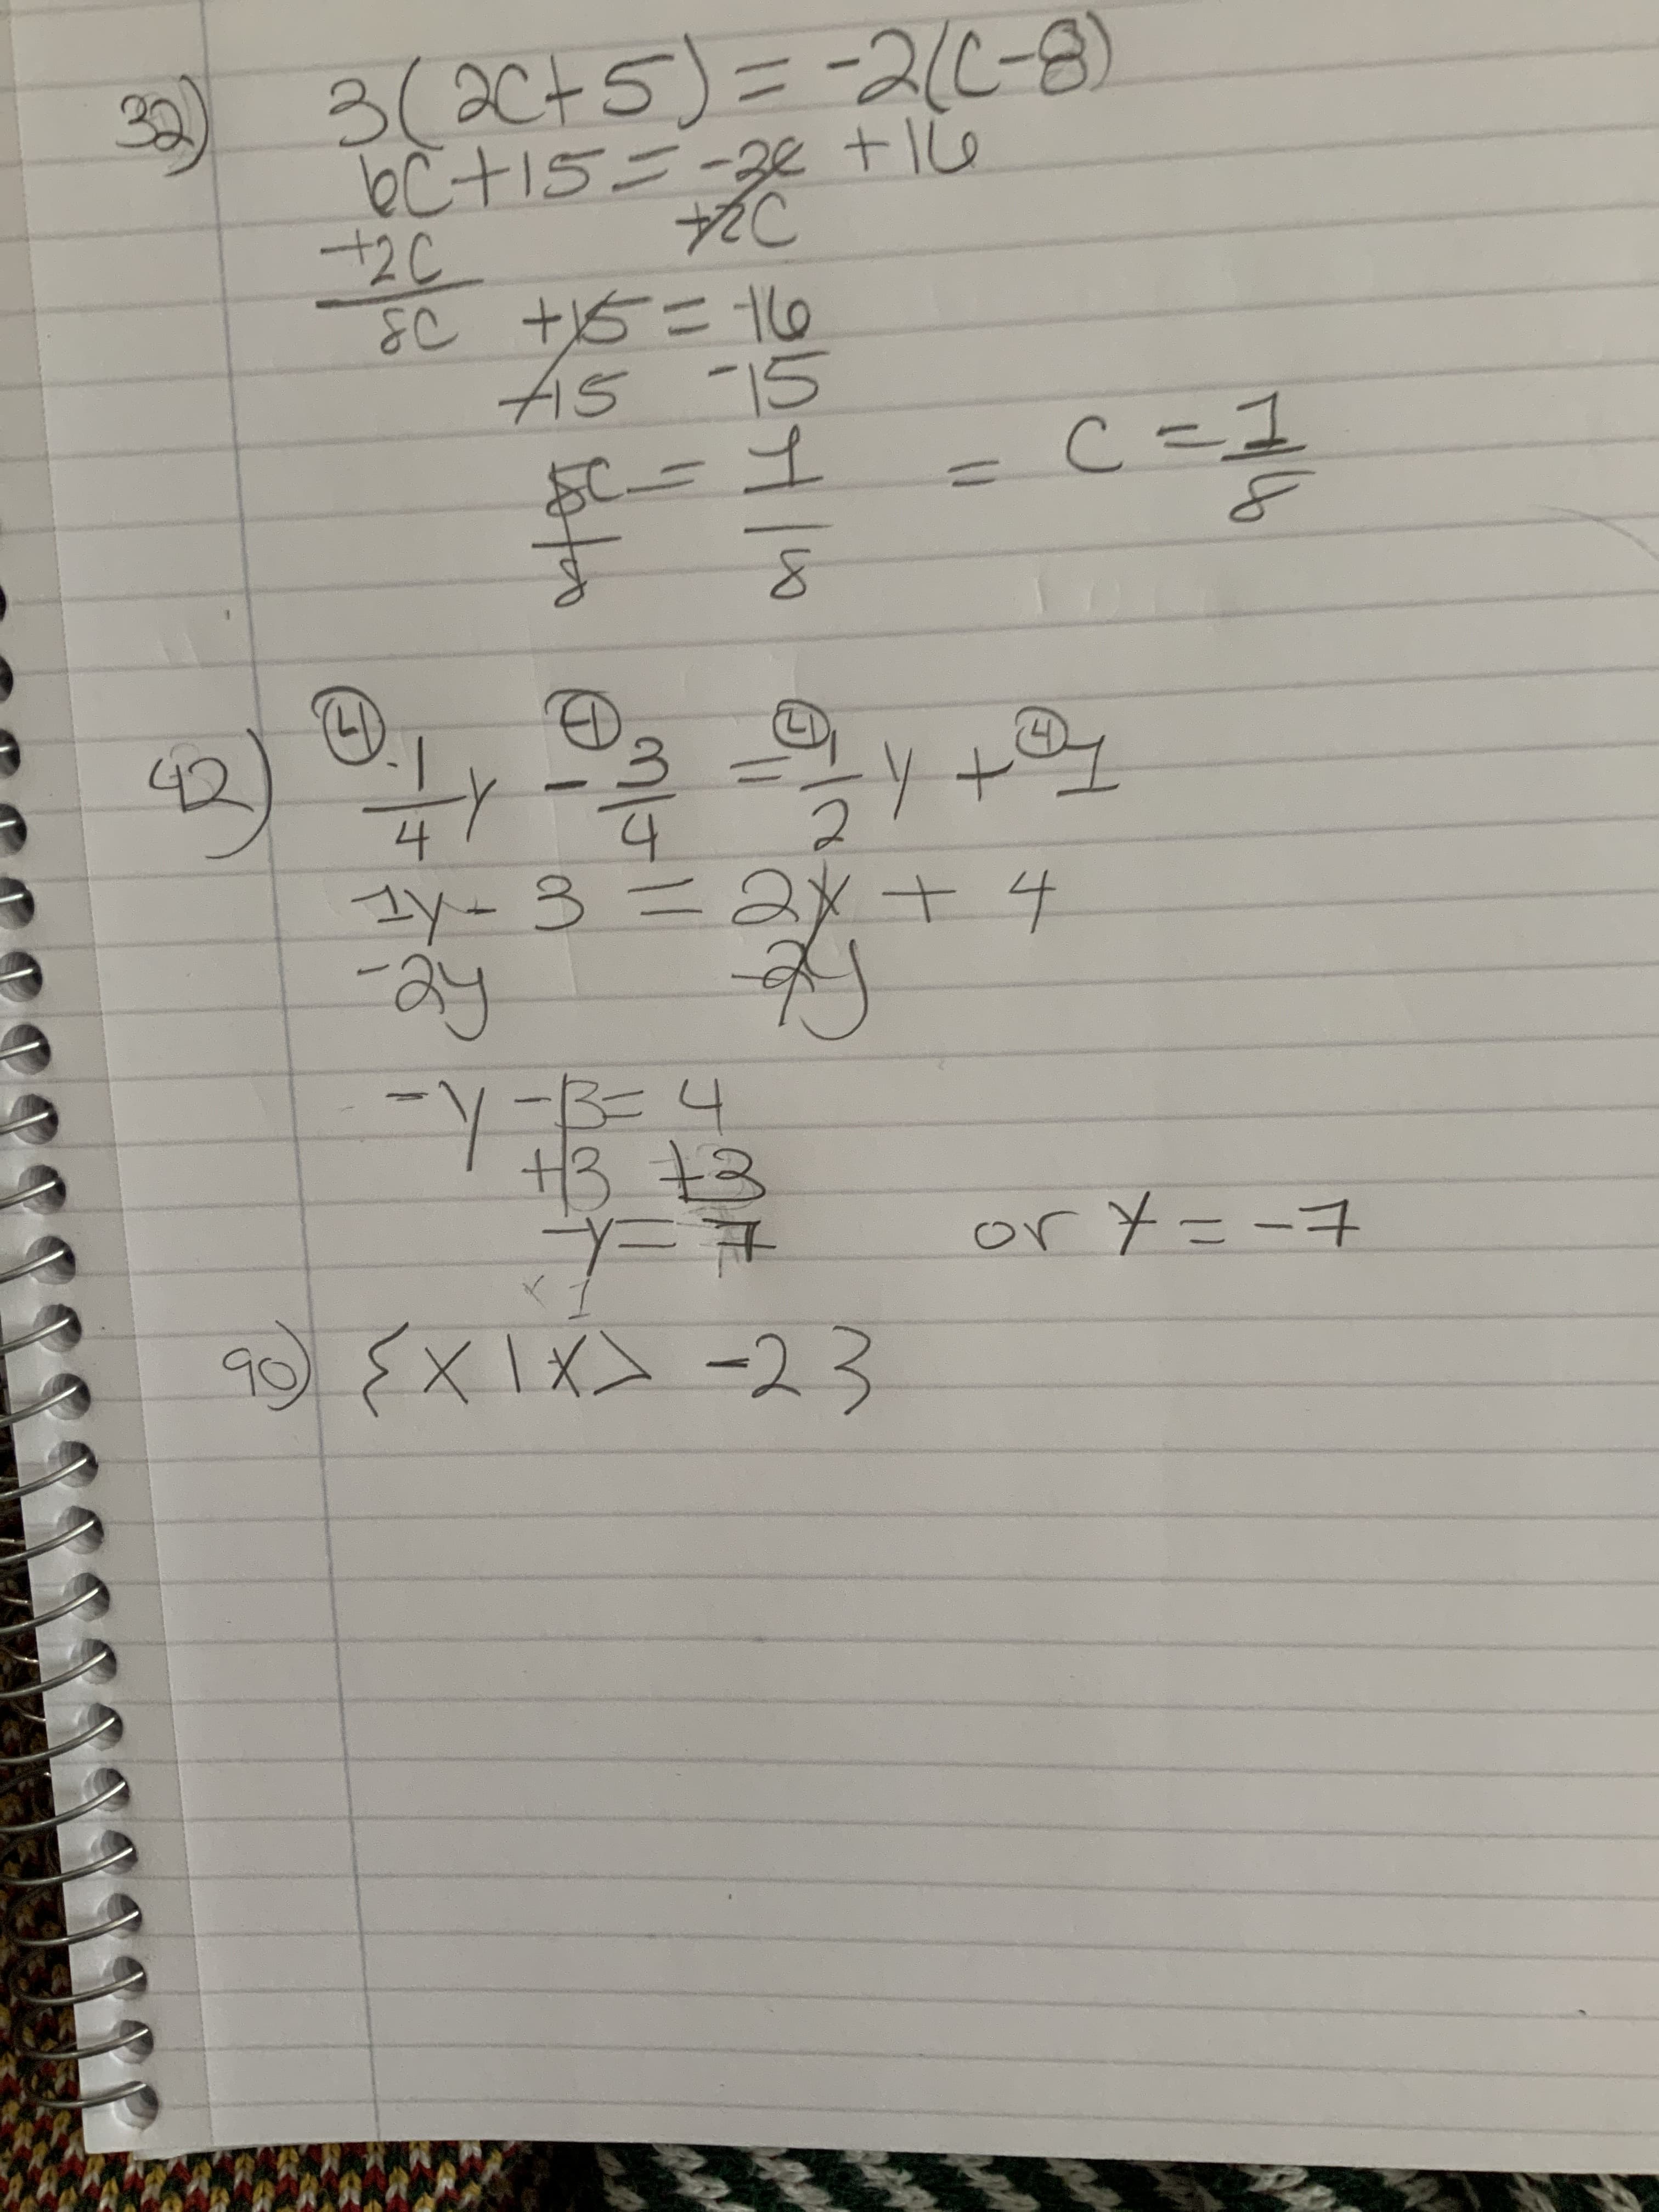 32) 3(2C+5)=-2(C-8)
6C+15=-2C+16
+2C +2C
8C +15=16
-15 -15
8C = 1 = C = 1/8
8 8
42) ④ 1/4 y - ④ 3/4 = ④ 1/2 y + ④ 1
1y - 3 = 2y + 4
-2y -2y
-y -3 = 4
+3 +3
-y = 7 or y = -7
90) {X | X > -2}